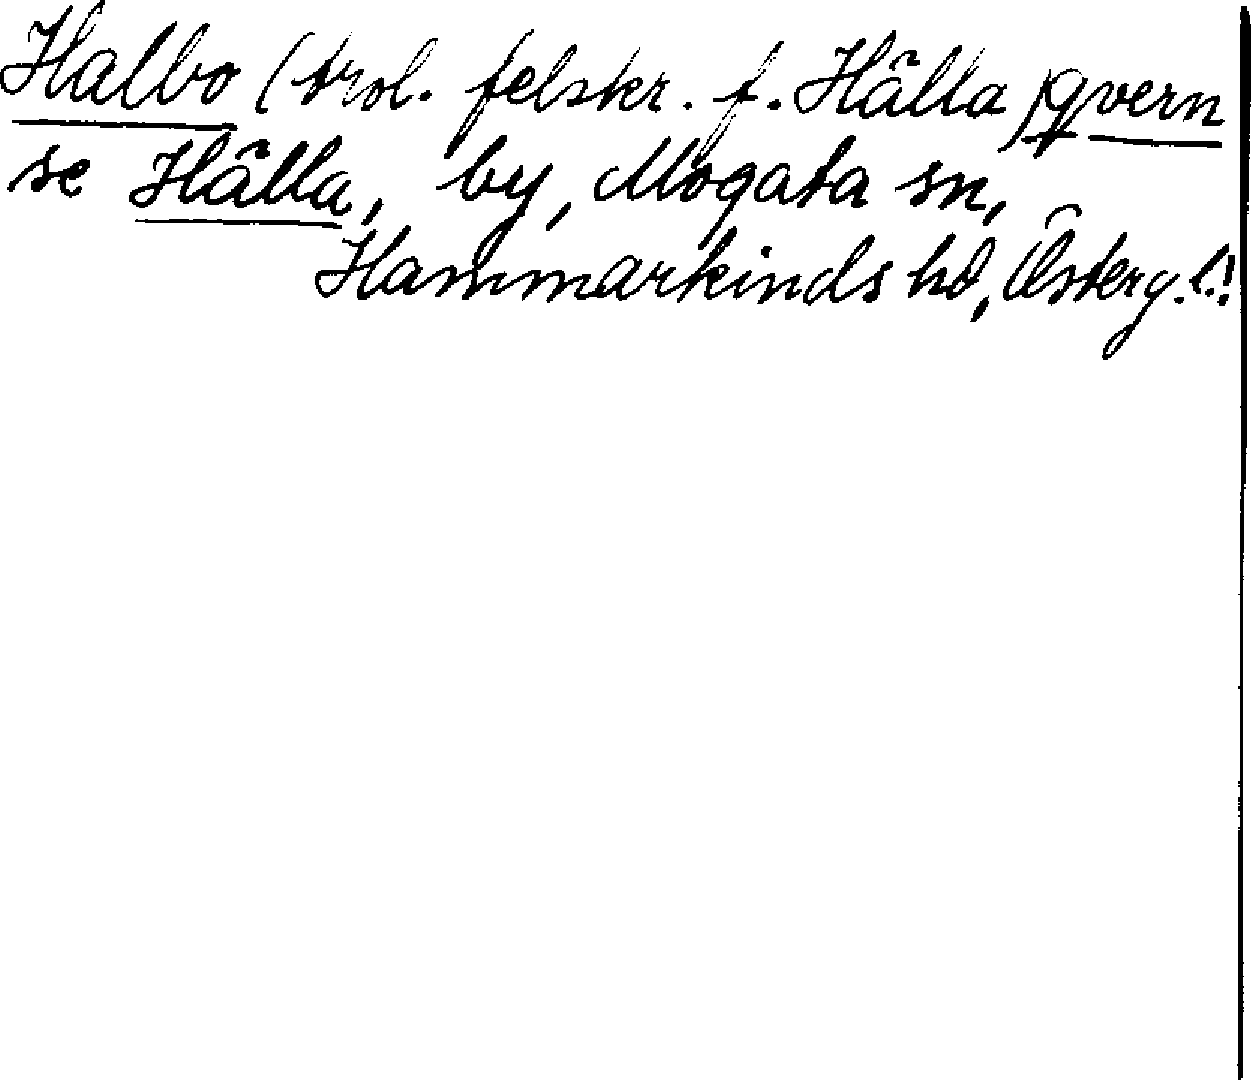 Halbo (trol. felskr. f. Hälla) qvern
se Hälla, by, Mogata sn,
Hammarkinds hd, Österg. l.!